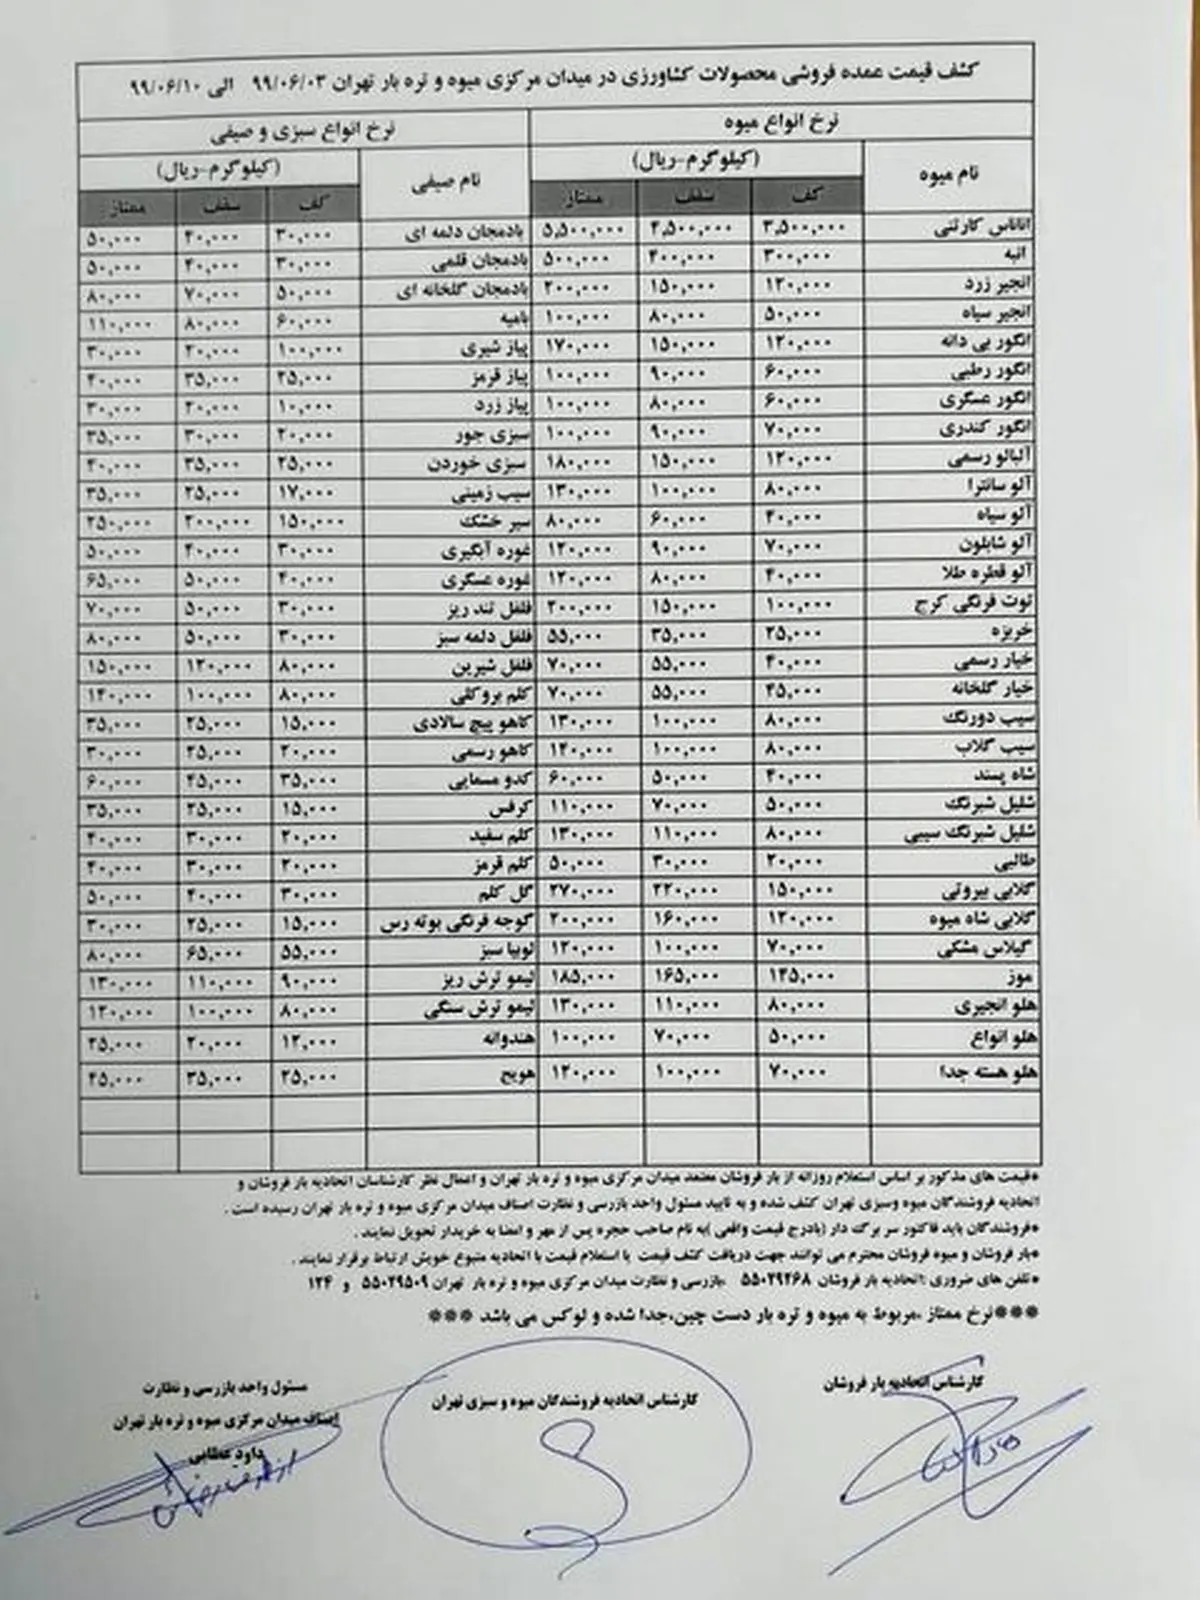 کشف قیمت عمده فروشی محصولات کشاورزی در میدان مرکزی میوه و تره بار تهران ۹۹/۰۶/۰۳ الی ۹۹/۰۶/۱۰
نرخ انواع میوه نرخ انواع سبزی و صیفی
نام میوه (کیلوگرم-ریال) نام صیفی (کیلوگرم-ریال)
کف سقف ممتاز کف سقف ممتاز
اناناس کارتنی ۳,۵۰۰,۰۰۰ ۴,۵۰۰,۰۰۰ ۵,۵۰۰,۰۰۰ بادمجان دلمه ای ۳۰,۰۰۰ ۴۰,۰۰۰ ۵۰,۰۰۰
انبه ۳۰۰,۰۰۰ ۴۰۰,۰۰۰ ۵۰۰,۰۰۰ بادمجان قلمی ۳۰,۰۰۰ ۴۰,۰۰۰ ۵۰,۰۰۰
انجیر زرد ۱۲۰,۰۰۰ ۱۵۰,۰۰۰ ۲۰۰,۰۰۰ بادمجان گلخانه ای ۵۰,۰۰۰ ۷۰,۰۰۰ ۸۰,۰۰۰
انجیر سیاه ۵۰,۰۰۰ ۸۰,۰۰۰ ۱۰۰,۰۰۰ بامیه ۶۰,۰۰۰ ۸۰,۰۰۰ ۱۱۰,۰۰۰
انگور بی دانه ۱۲۰,۰۰۰ ۱۵۰,۰۰۰ ۱۷۰,۰۰۰ پیاز شیری ۱۰۰,۰۰۰ ۲۰,۰۰۰ ۳۰,۰۰۰
انگور رطبی ۶۰,۰۰۰ ۹۰,۰۰۰ ۱۰۰,۰۰۰ پیاز قرمز ۲۵,۰۰۰ ۳۵,۰۰۰ ۴۰,۰۰۰
انگور عسگری ۶۰,۰۰۰ ۸۰,۰۰۰ ۱۰۰,۰۰۰ پیاز زرد ۱۰,۰۰۰ ۲۰,۰۰۰ ۳۰,۰۰۰
انگور کندری ۷۰,۰۰۰ ۹۰,۰۰۰ ۱۰۰,۰۰۰ سبزی جور ۲۰,۰۰۰ ۳۰,۰۰۰ ۳۵,۰۰۰
آلبالو رسمی ۱۲۰,۰۰۰ ۱۵۰,۰۰۰ ۱۸۰,۰۰۰ سبزی خوردن ۲۵,۰۰۰ ۳۵,۰۰۰ ۴۰,۰۰۰
آلو سانترا ۸۰,۰۰۰ ۱۰۰,۰۰۰ ۱۳۰,۰۰۰ سیب زمینی ۱۷,۰۰۰ ۲۵,۰۰۰ ۳۵,۰۰۰
آلو سیاه ۴۰,۰۰۰ ۶۰,۰۰۰ ۸۰,۰۰۰ سیر خشک ۱۵۰,۰۰۰ ۲۰۰,۰۰۰ ۲۵۰,۰۰۰
آلو شابلون ۷۰,۰۰۰ ۹۰,۰۰۰ ۱۲۰,۰۰۰ غوره آبگیری ۳۰,۰۰۰ ۴۰,۰۰۰ ۵۰,۰۰۰
آلو قطره طلا ۴۰,۰۰۰ ۸۰,۰۰۰ ۱۲۰,۰۰۰ غوره عسگری ۴۰,۰۰۰ ۵۰,۰۰۰ ۶۵,۰۰۰
توت فرنگی کرج ۱۰۰,۰۰۰ ۱۵۰,۰۰۰ ۲۰۰,۰۰۰ فلفل تند ریز ۳۰,۰۰۰ ۵۰,۰۰۰ ۷۰,۰۰۰
خربزه ۲۵,۰۰۰ ۳۵,۰۰۰ ۵۵,۰۰۰ فلفل دلمه سبز ۳۰,۰۰۰ ۵۰,۰۰۰ ۸۰,۰۰۰
خیار رسمی ۴۰,۰۰۰ ۵۵,۰۰۰ ۷۰,۰۰۰ فلفل شیرین ۸۰,۰۰۰ ۱۲۰,۰۰۰ ۱۵۰,۰۰۰
خیار گلخانه ۴۵,۰۰۰ ۵۵,۰۰۰ ۷۰,۰۰۰ کلم بروکلی ۸۰,۰۰۰ ۱۰۰,۰۰۰ ۱۴۰,۰۰۰
سیب دورنگ ۸۰,۰۰۰ ۱۰۰,۰۰۰ ۱۳۰,۰۰۰ کاهو پیچ سالادی ۱۵,۰۰۰ ۲۵,۰۰۰ ۳۵,۰۰۰
سیب گلاب ۸۰,۰۰۰ ۱۰۰,۰۰۰ ۱۴۰,۰۰۰ کاهو رسمی ۲۰,۰۰۰ ۲۵,۰۰۰ ۳۰,۰۰۰
شاه پسند ۴۰,۰۰۰ ۵۰,۰۰۰ ۶۰,۰۰۰ کدو مسمایی ۳۵,۰۰۰ ۴۵,۰۰۰ ۶۰,۰۰۰
شلیل شبرنگ ۵۰,۰۰۰ ۷۰,۰۰۰ ۱۱۰,۰۰۰ کرفس ۱۵,۰۰۰ ۲۵,۰۰۰ ۳۵,۰۰۰
شلیل شبرنگ سیبی ۸۰,۰۰۰ ۱۱۰,۰۰۰ ۱۳۰,۰۰۰ کلم سفید ۲۰,۰۰۰ ۳۰,۰۰۰ ۴۰,۰۰۰
طالبی ۲۰,۰۰۰ ۳۰,۰۰۰ ۵۰,۰۰۰ کلم قرمز ۲۰,۰۰۰ ۳۰,۰۰۰ ۴۰,۰۰۰
گلابی بیروتی ۱۵۰,۰۰۰ ۲۲۰,۰۰۰ ۲۷۰,۰۰۰ گل کلم ۳۰,۰۰۰ ۴۰,۰۰۰ ۵۰,۰۰۰
گلابی شاه میوه ۱۲۰,۰۰۰ ۱۶۰,۰۰۰ ۲۰۰,۰۰۰ گوجه فرنگی بوته رس ۱۵,۰۰۰ ۲۵,۰۰۰ ۳۰,۰۰۰
گیلاس مشکی ۷۰,۰۰۰ ۱۰۰,۰۰۰ ۱۲۰,۰۰۰ لوبیا سبز ۵۵,۰۰۰ ۶۵,۰۰۰ ۸۰,۰۰۰
موز ۱۴۵,۰۰۰ ۱۶۵,۰۰۰ ۱۸۵,۰۰۰ لیمو ترش ریز ۹۰,۰۰۰ ۱۱۰,۰۰۰ ۱۳۰,۰۰۰
هلو انجیری ۸۰,۰۰۰ ۱۱۰,۰۰۰ ۱۳۰,۰۰۰ لیمو ترش سنگی ۸۰,۰۰۰ ۱۰۰,۰۰۰ ۱۲۰,۰۰۰
هلو انواع ۵۰,۰۰۰ ۷۰,۰۰۰ ۱۰۰,۰۰۰ هندوانه ۱۲,۰۰۰ ۲۰,۰۰۰ ۲۵,۰۰۰
هلو هسته جدا ۷۰,۰۰۰ ۱۰۰,۰۰۰ ۱۲۰,۰۰۰ هویج ۲۵,۰۰۰ ۳۵,۰۰۰ ۴۵,۰۰۰
*قیمت های مذکور بر اساس استعلام روزانه از بار فروشان معتمد میدان مرکزی میوه و تره بار تهران و اعمال نظر کارشناسان اتحادیه بار فروشان و
اتحادیه فروشندگان میوه وسبزی تهران کشف شده و به تایید مسئول واحد بازرسی و نظارت اصناف میدان مرکزی میوه و تره بار تهران رسیده است .
*فروشندگان باید فاکتور سر برگ دار (بادرج قیمت واقعی )به نام صاحب حجره پس از مهر و امضا به خریدار تحویل نمایند .
*بار فروشان و میوه فروشان محترم می توانند جهت دریافت کشف قیمت یا استعلام قیمت با اتحادیه متبوع خویش ارتباط برقرار نمایند .
*تلفن های ضروری :اتحادیه بار فروشان ۵۵۰۲۹۲۶۸ بازرسی و نظارت میدان مرکزی میوه و تره بار تهران ۵۵۰۲۹۵۰۹ و ۱۲۴
***نرخ ممتاز ،مربوط به میوه و تره بار دست چین،جدا شده و لوکس می باشد ***
کارشناس اتحادیه بار فروشان
کارشناس اتحادیه فروشندگان میوه و سبزی تهران
مسئول واحد بازرسی و نظارت
اصناف میدان مرکزی میوه و تره بار تهران
داود عطایی